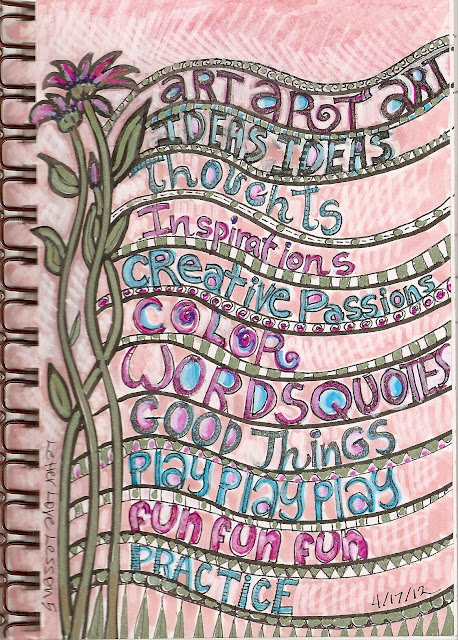 ART ART ART
IDEAS IDEAS
Thoughts
Inspirations
CReative Passions
COLOR
WORDS QUOTES
GOOD THiNGS
Play Play Play
fun fun fun
PRACTICE
4/17/12
Letter Love Lesson 7